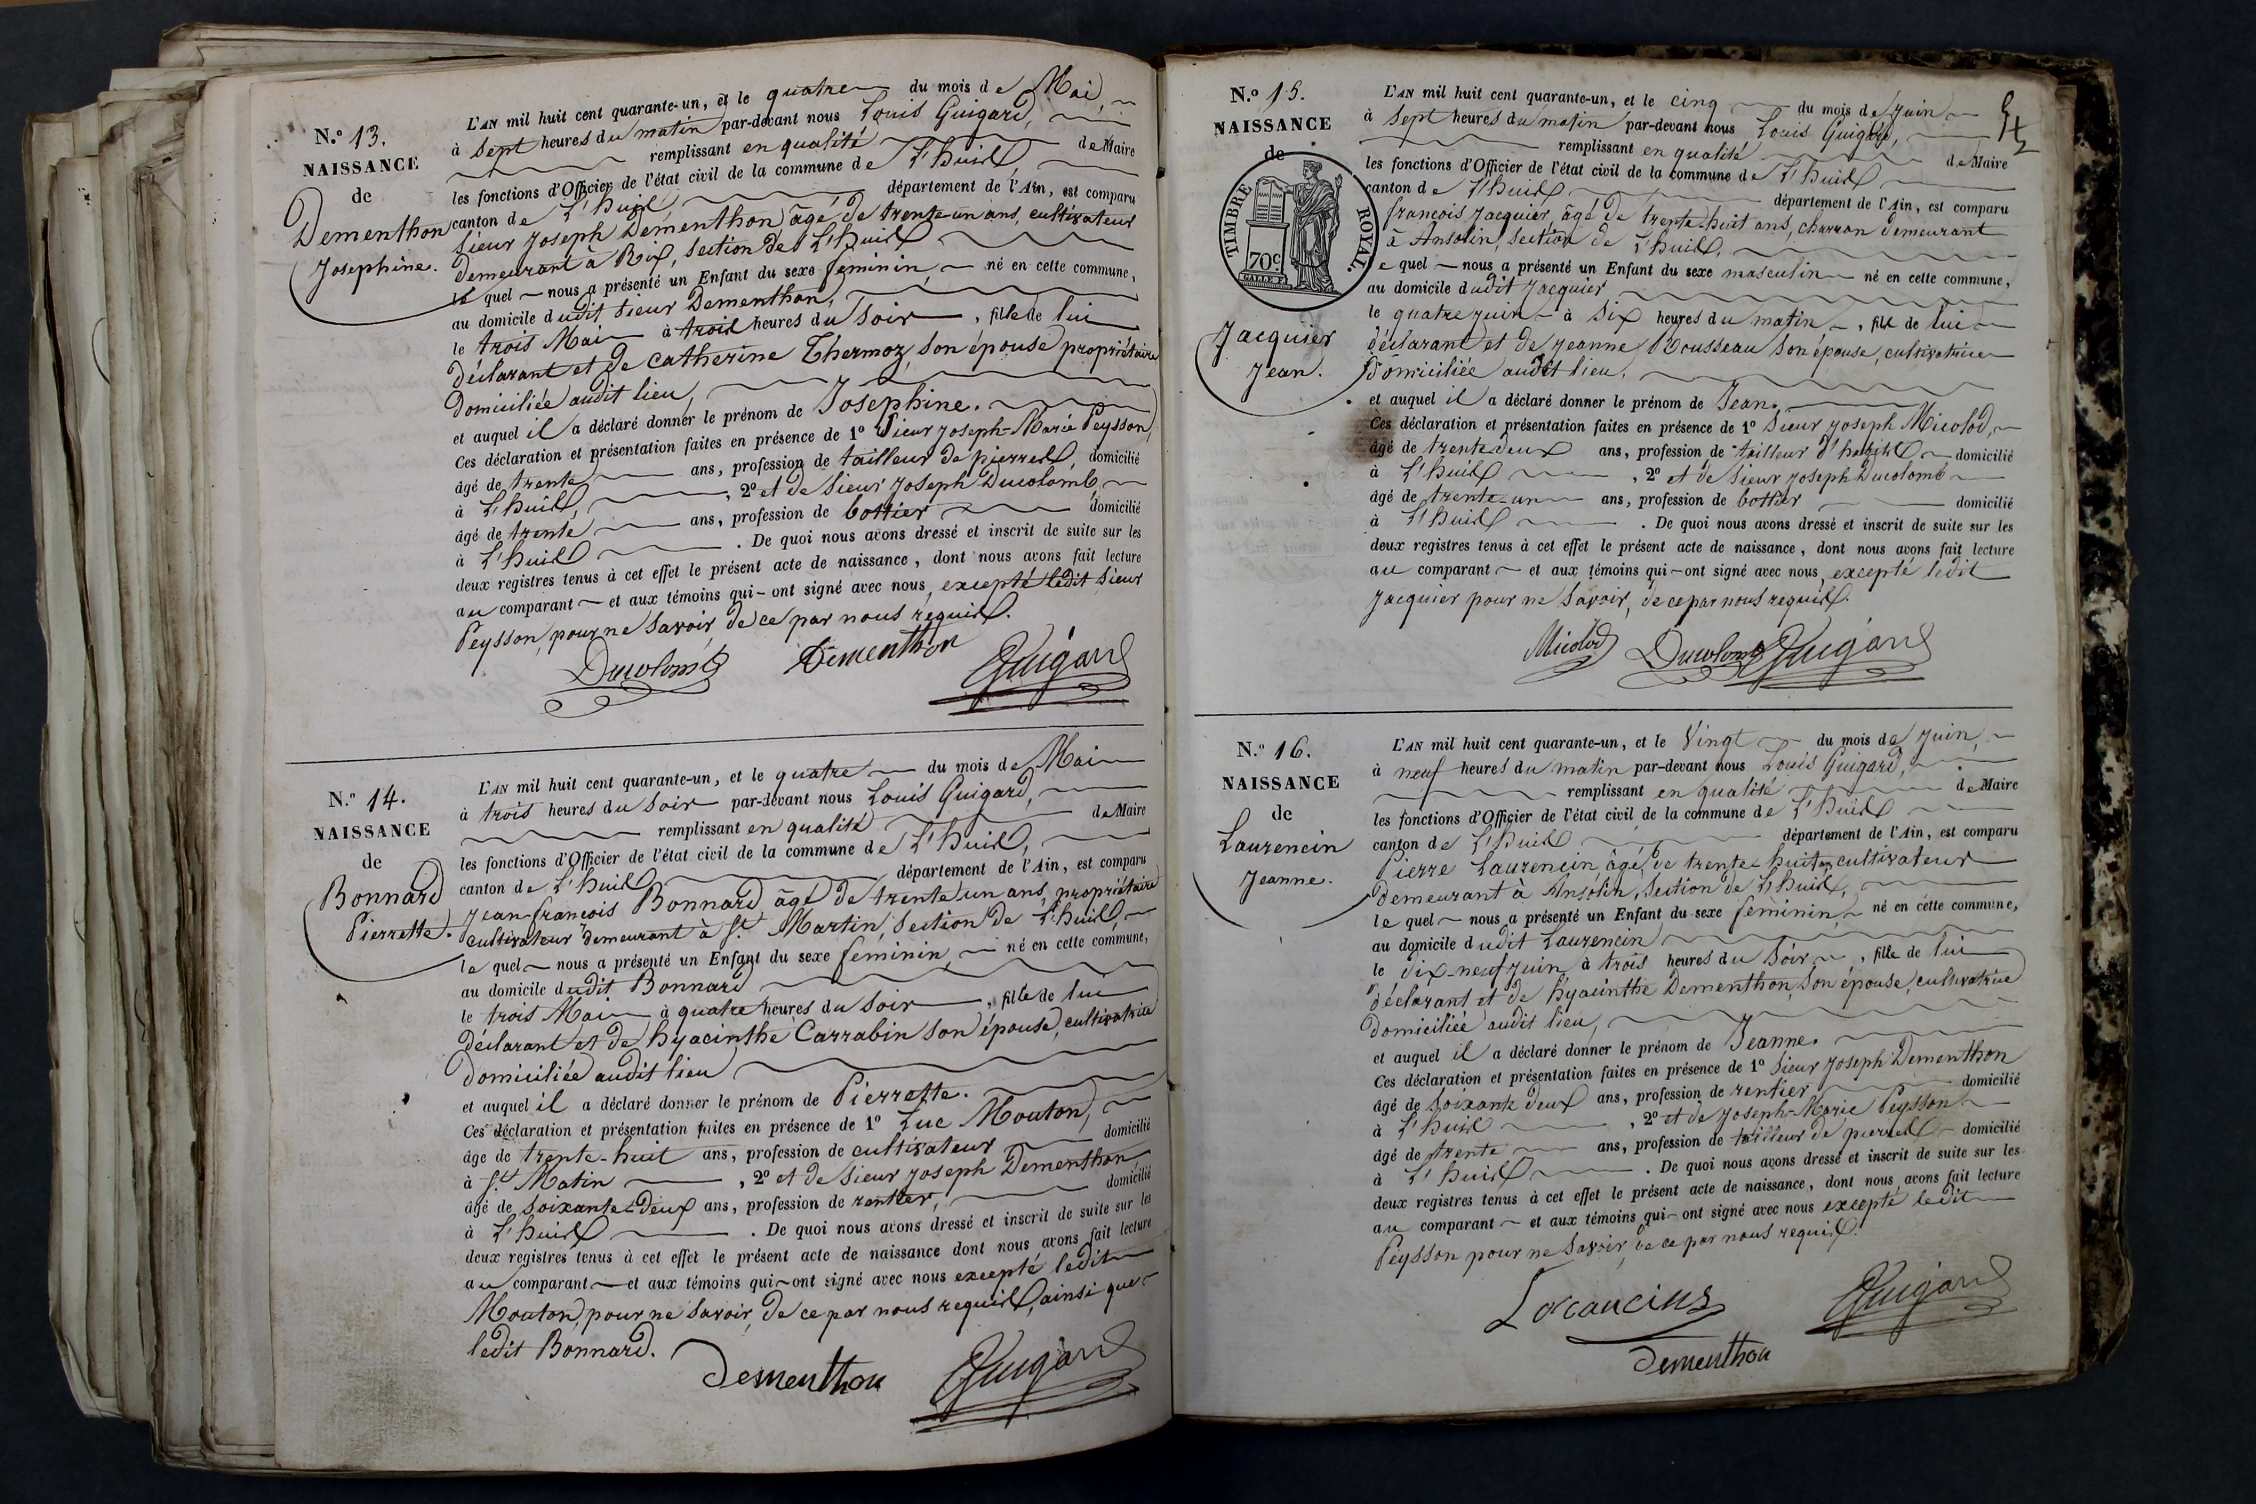 N.º 13.
NAISSANCE
de
Dementhon
Josephine.
L'AN mil huit cent quarante-un, et le quatre du mois de Mai,
à sept heures du matin par-devant nous Louis Guigard,
remplissant en qualité de Maire
les fonctions d'Officier de l'état civil de la commune de L'huis,
canton de L'huis département de l'Ain, est comparu
Sieur Joseph Dementhon âgé de trente-un ans, cultivateur
demeurant à Rix, section de L'huis
le quel nous a présenté un Enfant du sexe feminin, né en cette commune,
au domicile dudit sieur Dementhon,
le trois Mai à trois heures du soir, fille de lui
déclarant et de catherine Thermoz, son épouse propriétaire
domiciliée audit lieu,
et auquel il a déclaré donner le prénom de Josephine.
Ces déclaration et présentation faites en présence de 1º Sieur Joseph-Marie Peysson,
âgé de trente ans, profession de tailleur de pierres, domicilié
à L'huis, , 2º et de Sieur Joseph Ducolomb
âgé de trente ans, profession de bottier domicilié
à L'huis . De quoi nous avons dressé et inscrit de suite sur les
deux registres tenus à cet effet le présent acte de naissance, dont nous avons fait lecture
au comparant et aux témoins qui ont signé avec nous, excepté ledit Sieur
Peysson, pour ne savoir, de ce par nous requis.
Ducolomb Dementhon Guigard
N.º 14.
NAISSANCE
de
Bonnard
Pierrette.
L'AN mil huit cent quarante-un, et le quatre du mois de Mai
à trois heures du soir par-devant nous Louis Guigard,
remplissant en qualité de Maire
les fonctions d'Officier de l'état civil de la commune de L'huis,
canton de L'huis département de l'Ain, est comparu
Jean-françois Bonnard âgé de trente un ans, propriétaire
cultivateur demeurant à St. Martin, section de L'huis,
le quel nous a présenté un Enfant du sexe feminin, né en cette commune,
au domicile dudit Bonnard
le trois Mai à quatre heures du soir, fille de lui
déclarant et de hyacinthe Carrabin son épouse, cultivatrice
domiciliée audit lieu
et auquel il a déclaré donner le prénom de Pierrette.
Ces déclaration et présentation faites en présence de 1º Luc Mouton,
âgé de trente-huit ans, profession de cultivateur domicilié
à St. Matin , 2º et de Sieur Joseph Dementhon,
âgé de soixante-deux ans, profession de rentier, domicilié
à L'huis . De quoi nous avons dressé et inscrit de suite sur les
deux registres tenus à cet effet le présent acte de naissance dont nous avons fait lecture
au comparant et aux témoins qui ont signé avec nous excepté ledit
Mouton, pour ne savoir, de ce par nous requis, ainsi que
ledit Bonnard.
Dementhon Guigard
N.º 15.
NAISSANCE
de
TIMBRE ROYAL.
70c
Jacquier
Jean.
L'AN mil huit cent quarante-un, et le cinq du mois de Juin
à sept heures du matin par-devant nous Louis Guigard,
remplissant en qualité de Maire
les fonctions d'Officier de l'état civil de la commune de L'huis
canton de L'huis département de l'Ain, est comparu
françois Jacquier, âgé de trente-huit ans, charron demeurant
à Ansolin, section de L'huis,
e quel nous a présenté un Enfant du sexe masculin né en cette commune,
au domicile dudit Jacquier
le quatre juin à six heures du matin, fils de lui
déclarant et de Jeanne Rousseau son épouse, cultivatrice
domiciliée audit lieu.
et auquel il a déclaré donner le prénom de Jean.
Ces déclaration et présentation faites en présence de 1º Sieur Joseph Micolod,
âgé de trente deux ans, profession de tailleur d'habits domicilié
à L'huis , 2º et de Sieur Joseph Ducolomb
âgé de trente-un ans, profession de bottier domicilié
à L'huis . De quoi nous avons dressé et inscrit de suite sur les
deux registres tenus à cet effet le présent acte de naissance, dont nous avons fait lecture
au comparant et aux témoins qui ont signé avec nous, excepté ledit
Jacquier pour ne savoir, de ce par nous requis.
Micolod Ducolomb Guigard
N.º 16.
NAISSANCE
de
Laurencin
Jeanne.
L'AN mil huit cent quarante-un, et le Vingt du mois de Juin,
à neuf heures du matin par-devant nous Louis Guigard,
remplissant en qualité de Maire
les fonctions d'Officier de l'état civil de la commune de L'huis
canton de L'huis département de l'Ain, est comparu
Pierre Laurencin âgé de trente-huit cultivateur
demeurant à Ansolin, section de L'huis,
le quel nous a présenté un Enfant du sexe feminin, né en cette commune,
au domicile dudit Laurencin
le dix-neuf juin à trois heures du soir, fille de lui
déclarant et de hyacinthe Dementhon, son épouse, cultivatrice
domiciliée audit lieu,
et auquel il a déclaré donner le prénom de Jeanne.
Ces déclaration et présentation faites en présence de 1º Sieur Joseph Dementhon
âgé de soixante deux ans, profession de rentier domicilié
à L'huis , 2º et de Joseph-Marie Peysson
âgé de trente ans, profession de tailleur de pierres domicilié
à L'huis . De quoi nous avons dressé et inscrit de suite sur les
deux registres tenus à cet effet le présent acte de naissance, dont nous avons fait lecture
au comparant et aux témoins qui ont signé avec nous excepté ledit
Peysson pour ne savoir, de ce par nous requis.
Guigard
Dementhon